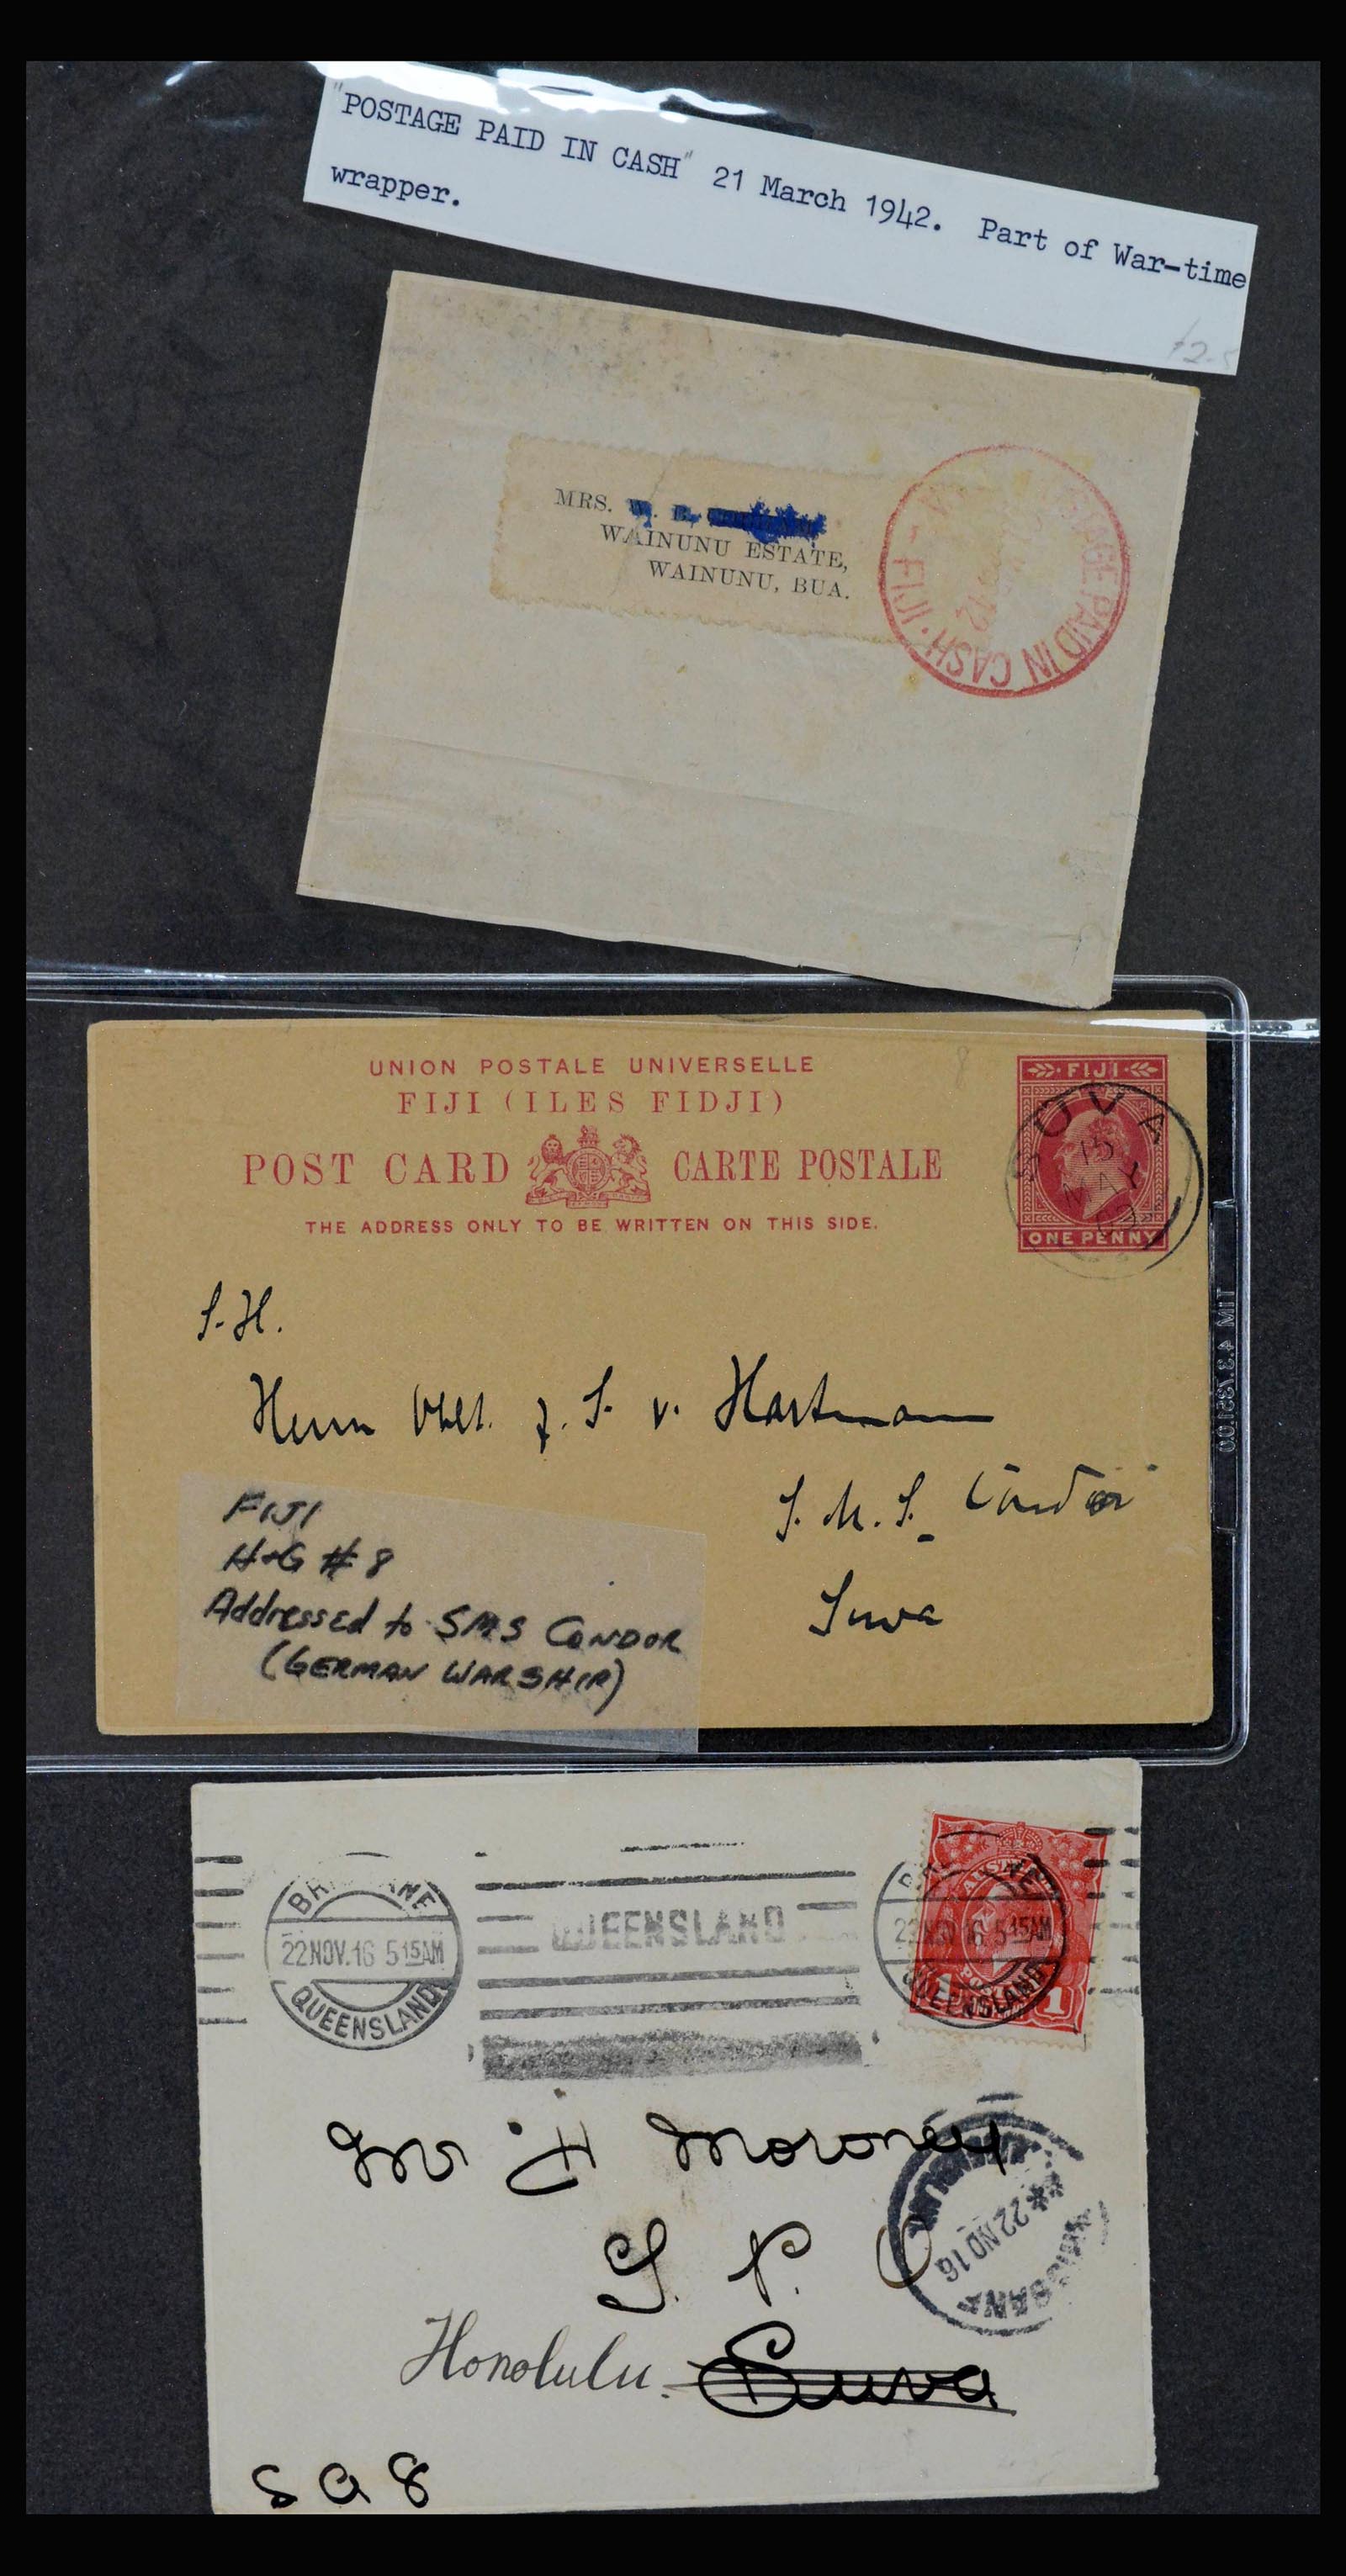 "POSTAGE PAID IN CASH" 21 March 1942. Part of War-time
wrapper.
MRS.
WAINUNU ESTATE,
WAINUNU, BUA.
PAID IN CASH · FIJI -
UNION POSTALE UNIVERSELLE
FIJI (ILES FIDJI)
POST CARD CARTE POSTALE
THE ADDRESS ONLY TO BE WRITTEN ON THIS SIDE.
FIJI
ONE PENNY
SUVA
15
MAY
S. H.
Herrn z. S. v. Hartmann
S. M. S. Condor
Suva
FIJI
H+G # 8
Addressed to SMS CONDOR
(GERMAN WARSHIP)
BRISBANE
22 NOV. 16 5 15 AM
QUEENSLAND
QUEENSLAND
BRISBANE
22 NOV 16 5 15 AM
QUEENSLAND
1
Mr H Moroney
G. P. O
BRISBANE
22 NO 16
Honolulu. Suva